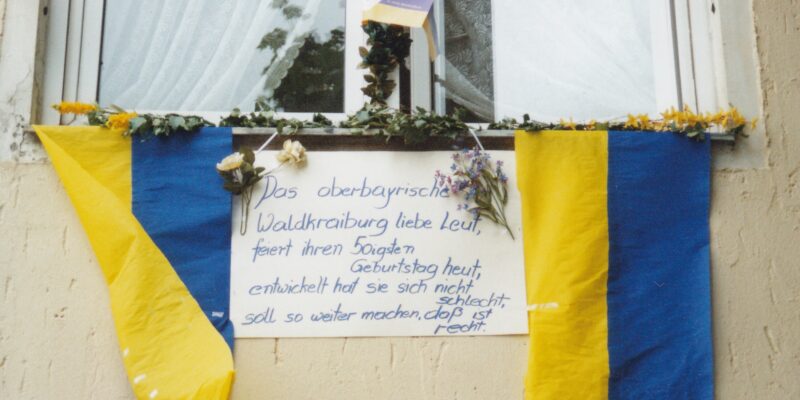 Das oberbayrische
Waldkraiburg liebe Leut,
feiert ihren 50igsten
Geburtstag heut,
entwickelt hat sie sich nicht
schlecht,
soll so weiter machen, daß ist
recht.